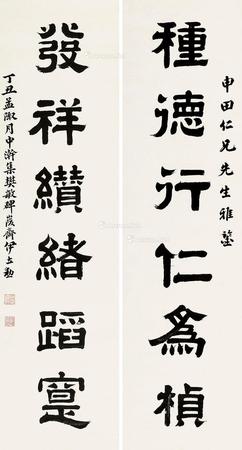 申田仁兄先生雅鑒
種德行仁為楨
發祥纘緒蹈寔
丁丑孟陬月中澣集樊敏碑 復齋伊立勳